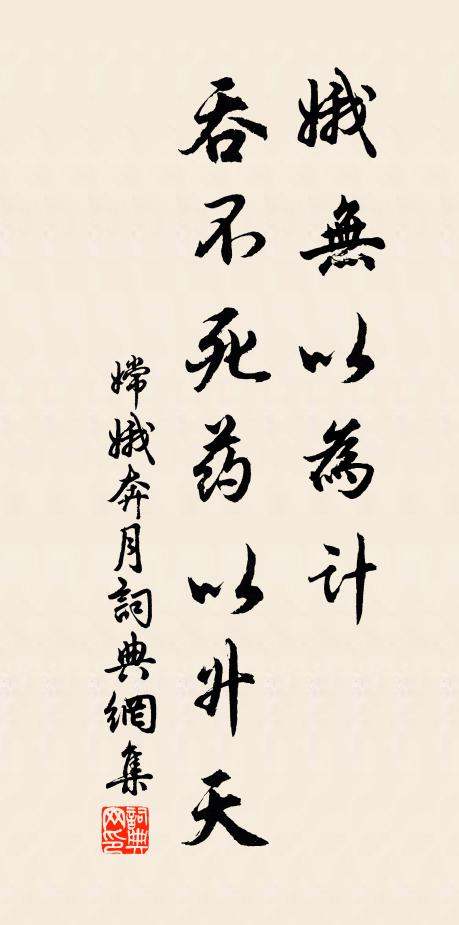 娥無以為計
吞不死药以升天
嫦娥奔月詞典網集
詞典
网印